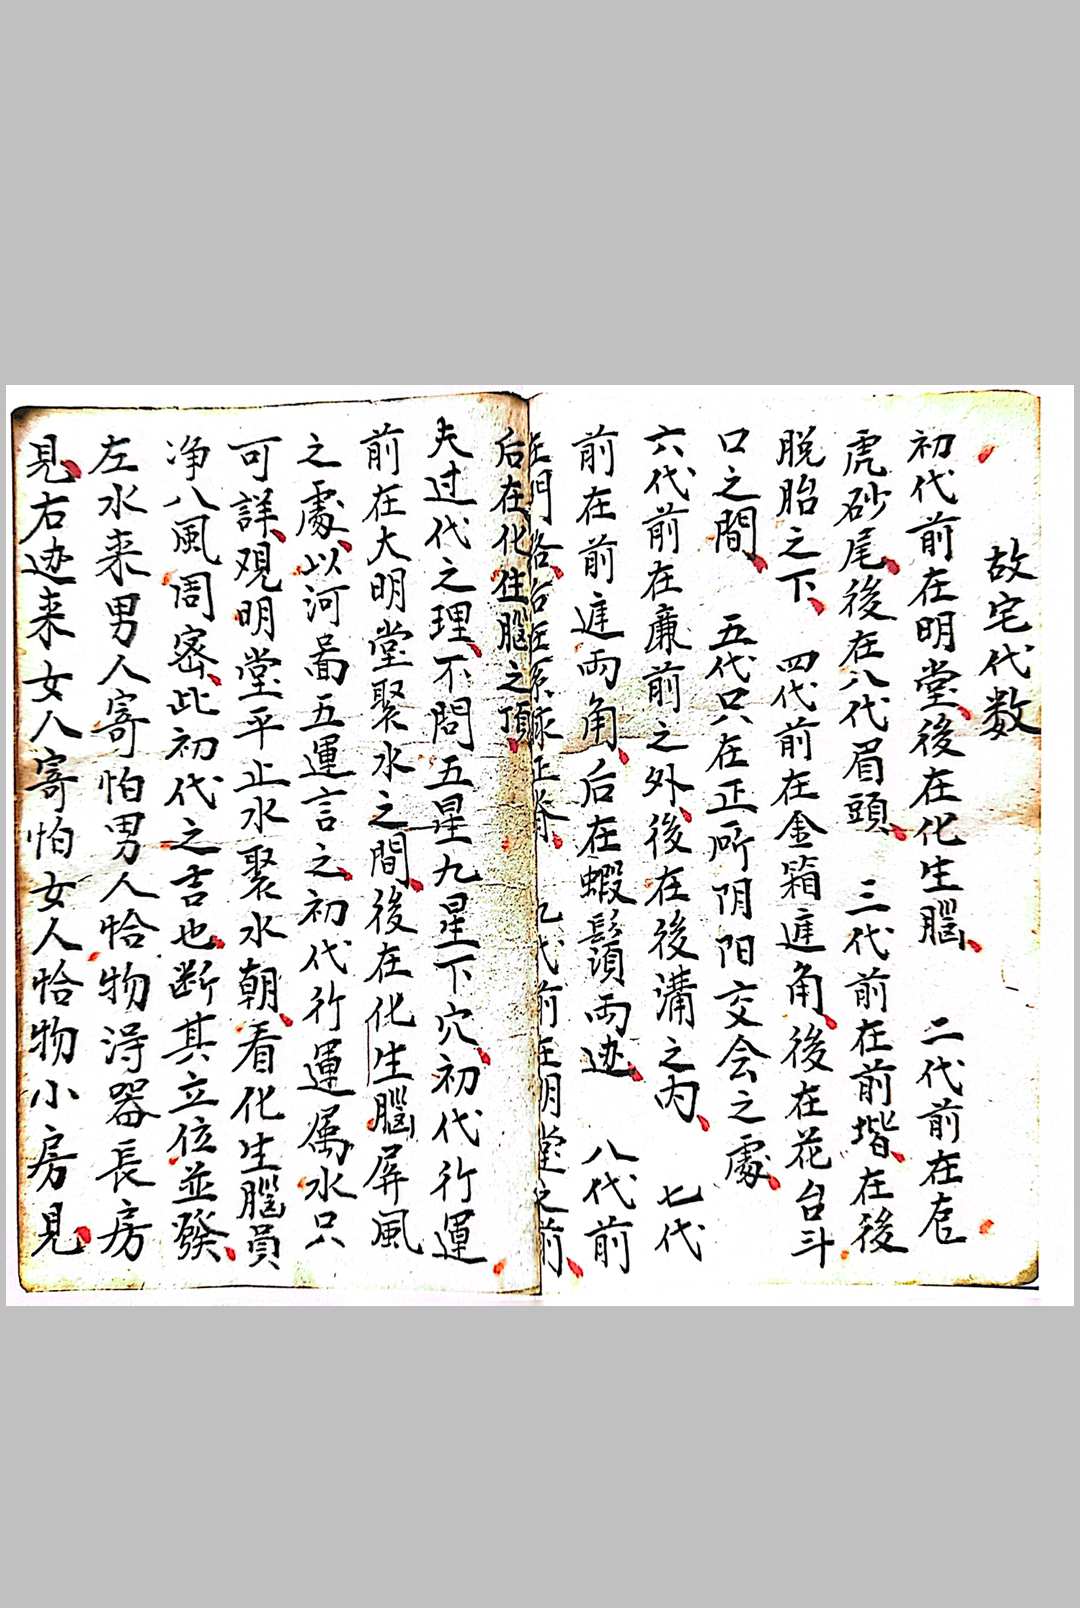 故宅代数
初代前在明堂後在化生腦 二代前在
虎砂尾後在八代眉頭 三代前在前堦在後
脱胎之下 四代前在金箱庭角後在花台斗
口之間 五代只在正所阴阳交会之處
六代前在廉前之外後在後溝之内 七代
前在前庭両角后在蝦鬚両边 八代前
后在化住腦之頂
夫过代之理不問五星九星下穴初代行運
前在大明堂聚水之間後在化生腦屏風
之處以河啚五運言之初代行運属水只
可詳观明堂平止水聚水朝看化生腦員
净八風周密此初代之吉也断其立位並發
左水来男人寄怕男人恰物浔器長房
見右边来女人寄怕女人恰物小房見